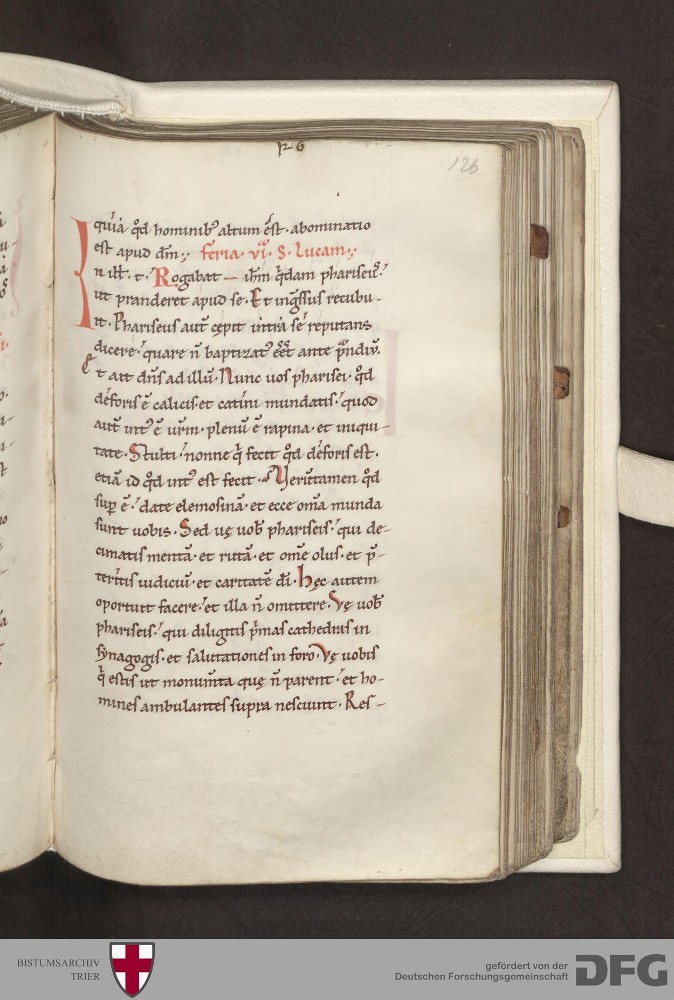 126
126
quia qd hominib altum est · abominatio
est apud dm ; feria · vi · S · lucam ;
In ill · t · Rogabat ihm qdam phariseus
ut pranderet apud se · Et ingssus recubu-
it · Phariseus aut cepit intra se reputans
dicere · quare n baptizat eet ante pndiu ·
Et ait dns ad illu · Nunc uos pharisei · qd
deforis ē calicis · et catini mundatis · quod
aut int ē urm · plenu ē rapina · et iniqui-
tate · Stulti · nonne q fecit qd deforis est ·
etiā id qd int est fecit · Ueruntamen qd
sup ē · date elemosinā · et ecce oma munda
sunt uobis · Sed uę uob phariseis · qui de-
cimatis mentā · et rutā · et ome olus · et p-
teritis iudiciū · et caritatē di · hęc autem
oportuit facere · et illa n omittere · Vę uob
phariseis · qui diligitis pmas cathedras in
synagogis · et salutationes in foro · Vę uobis
q estis ut monumta quę n parent · et ho-
mines ambulantes supra nesciunt · Res-
BISTUMSARCHIV
TRIER
gefördert von der
Deutschen Forschungsgemeinschaft
DFG